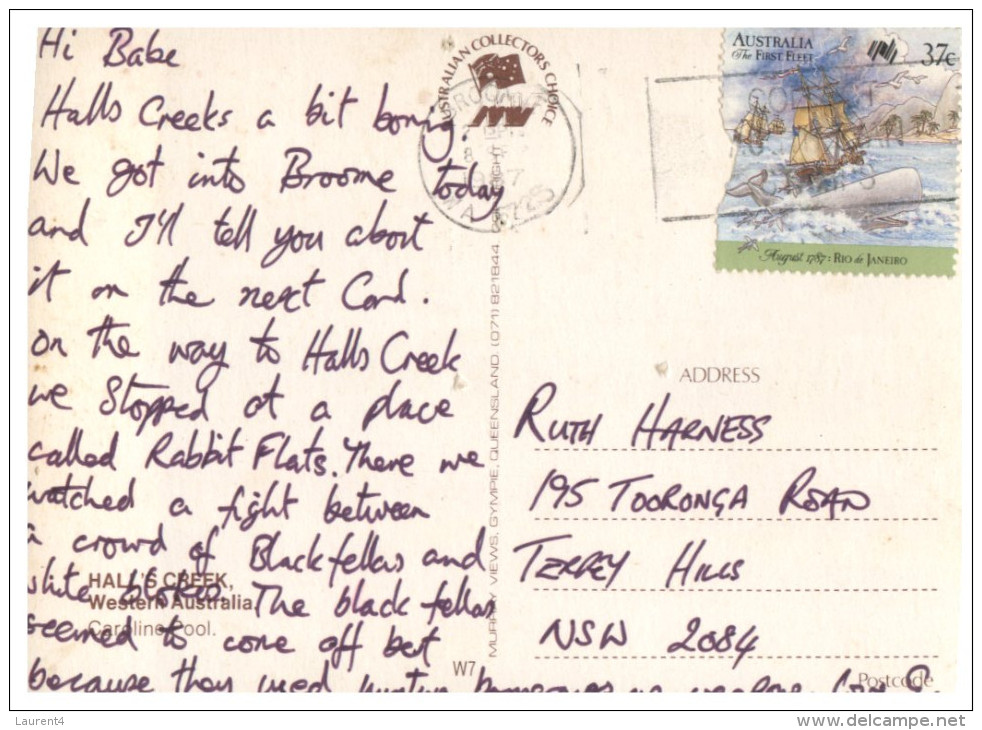 Hi Babe
Halls Creeks a bit boring.
We got into Broome today
and I'll tell you about
it on the next Card.
On the way to Halls Creek
we stopped at a place
called Rabbit Flats. There we
watched a fight between
a crowd of Blackfellas and
white blokes. The black fellas
seemed to come off best
because they used hunting boomerangs as weapons.
HALL'S CREEK,
Western Australia
Caroline Pool.
W7
AUSTRALIAN COLLECTORS CHOICE
MURRAY VIEWS, GYMPIE, QUEENSLAND. (071) 821844
COPYRIGHT
BROOME
1987
AUSTRALIA
The FIRST FLEET
37c
August 1787: RIO de JANEIRO
ADDRESS
RUTH HARNESS
195 TOORONGA ROAD
TERREY HILLS
NSW 2084
Postcode
Laurent4
www.delcampe.net